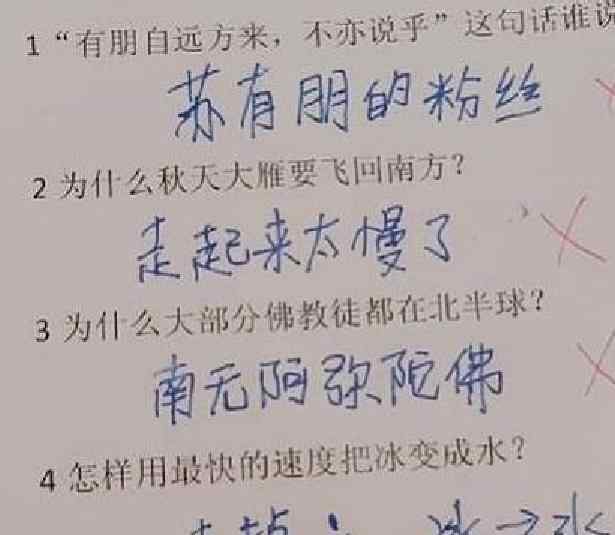 1 “有朋自远方来，不亦说乎” 这句话谁说
苏有朋的粉丝
2 为什么秋天大雁要飞回南方？
走起来太慢了
3 为什么大部分佛教徒都在北半球？
南无阿弥陀佛
4 怎样用最快的速度把冰变成水？
冰→水